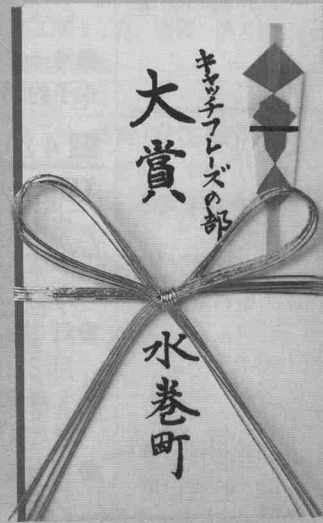 キャッチフレーズの部
大賞
水巻町